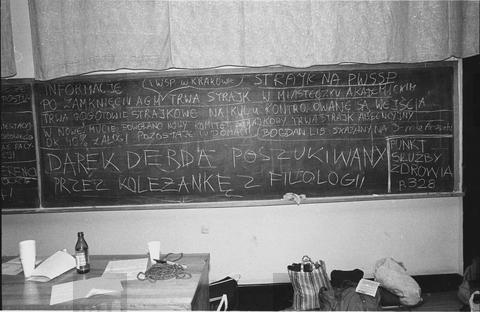 INFORMACJE (WSP W KRAKOWIE) STRAJK NA PWSSP
PO ZAMKNIĘCIU AGH TRWA STRAJK W MIASTECZKU AKADEMICKIM
TRWA GOTOWIE STRAJKOWE NA KUL-U KONTROLOWANE SĄ WEJŚCIA
W NOWEJ HUCIE POWOŁANO NOWY KOMITET STRAJKOWY TRWA STRAJK ABSENCYJNY
OK 40% ZAŁOGI POZOSTAJE W DOMACH (BOGDAN LIS SKAZANY NA 3
DAREK DERDA POSZUKIWANY
PRZEZ KOLEŻANKĘ Z FILOLOGII
PUNKT
SŁUŻBY
ZDROWIA
p.328